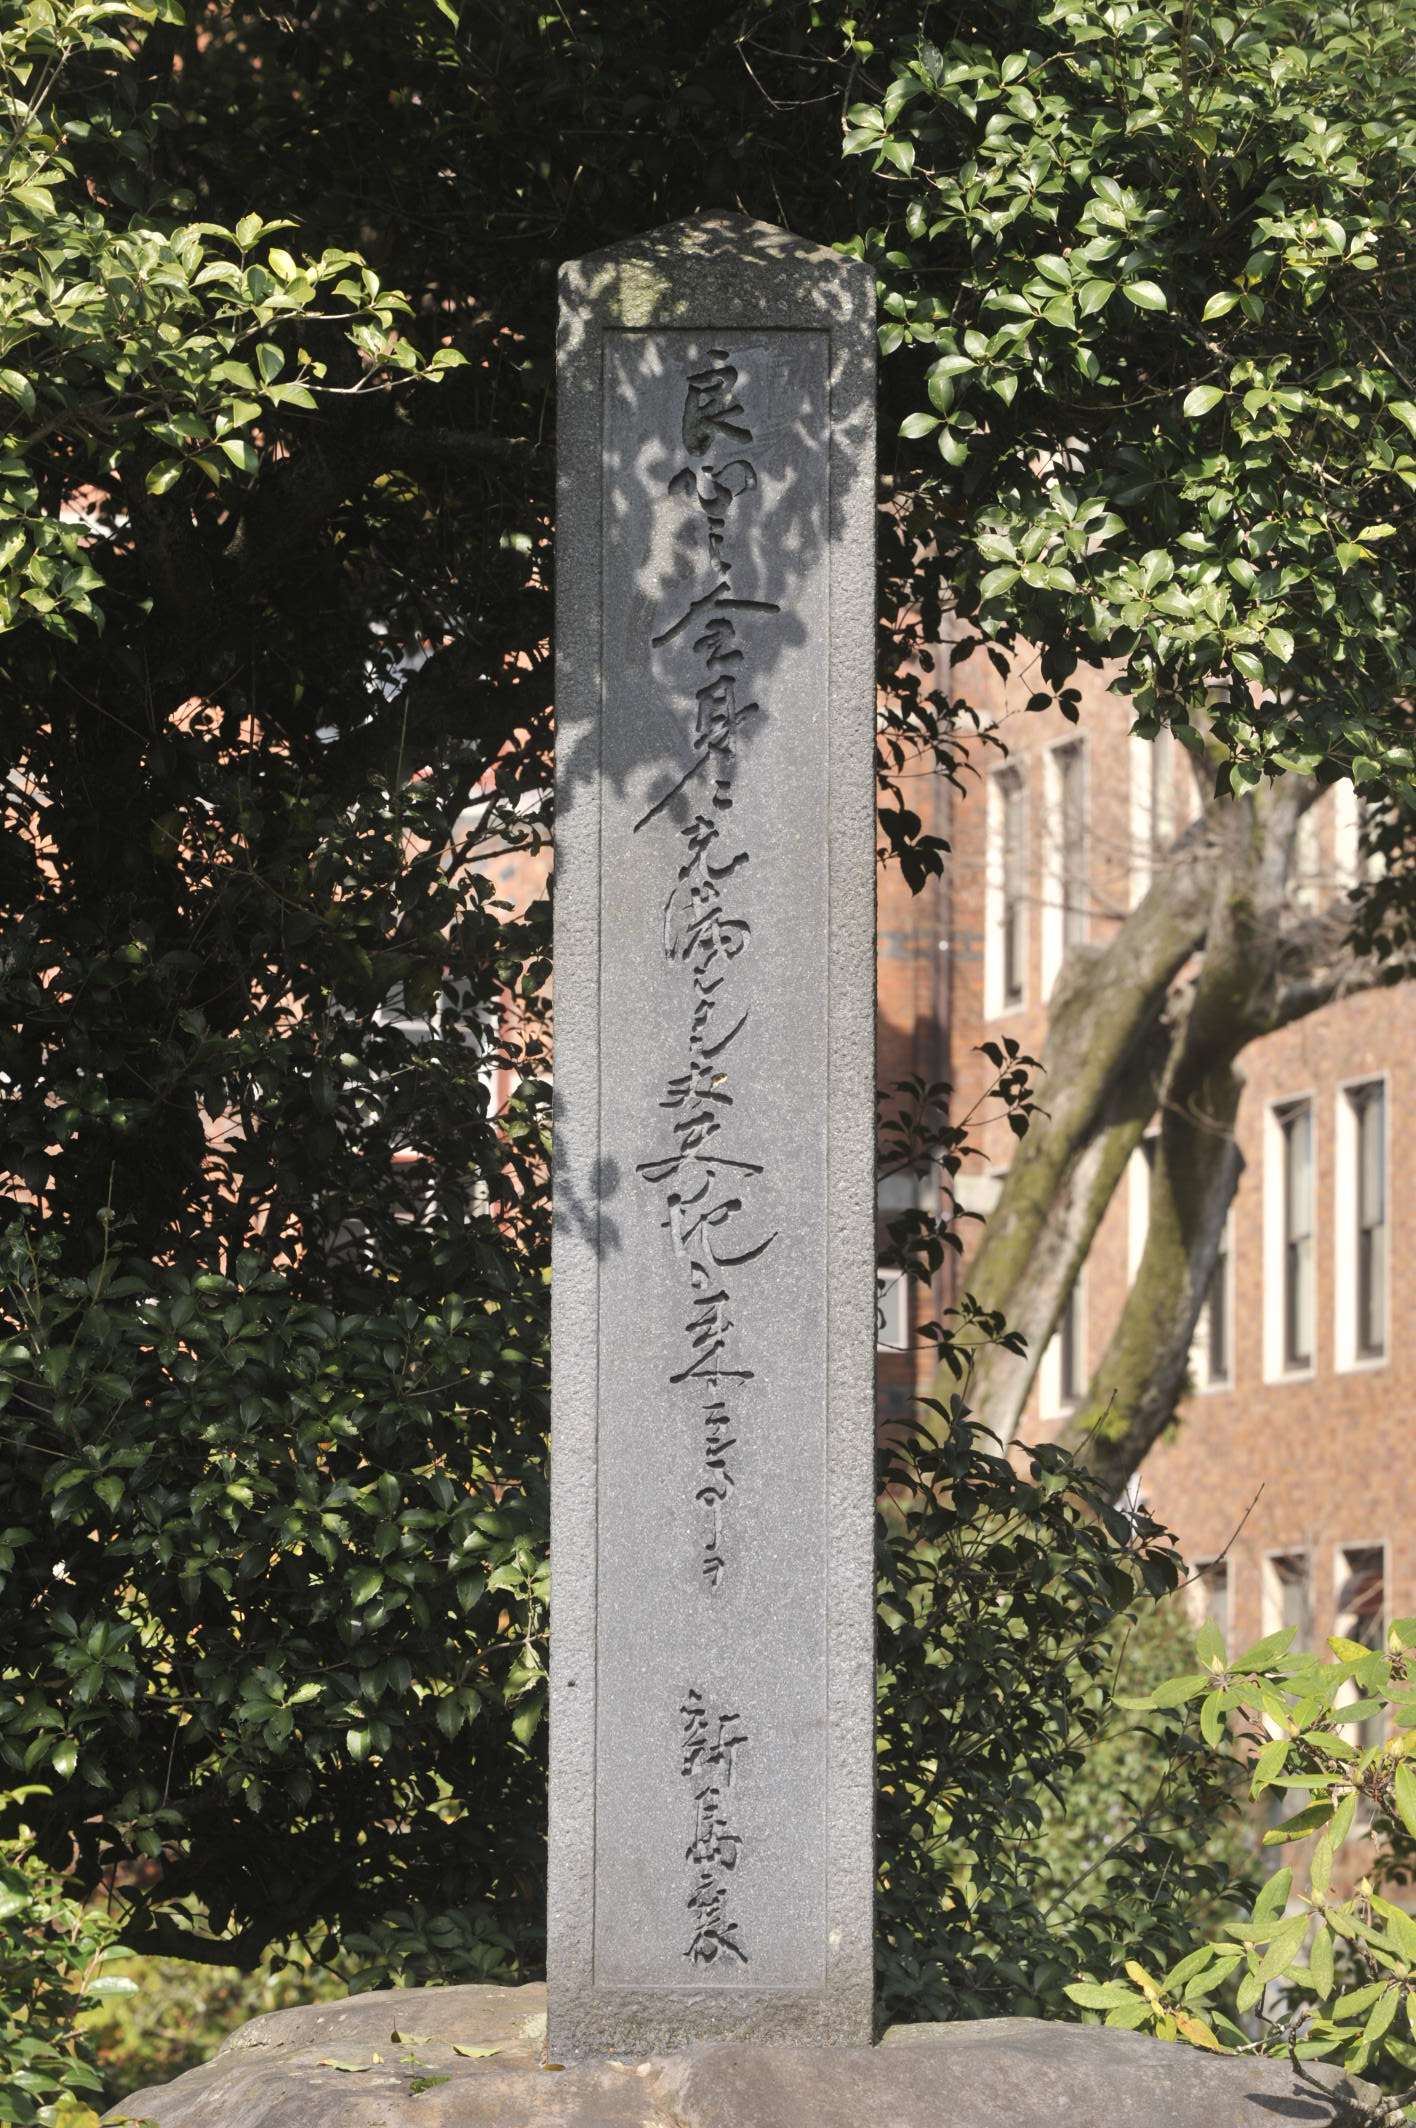 良心之全身ニ充満シタル丈夫ノ起リ来ラン事ヲ
新島襄